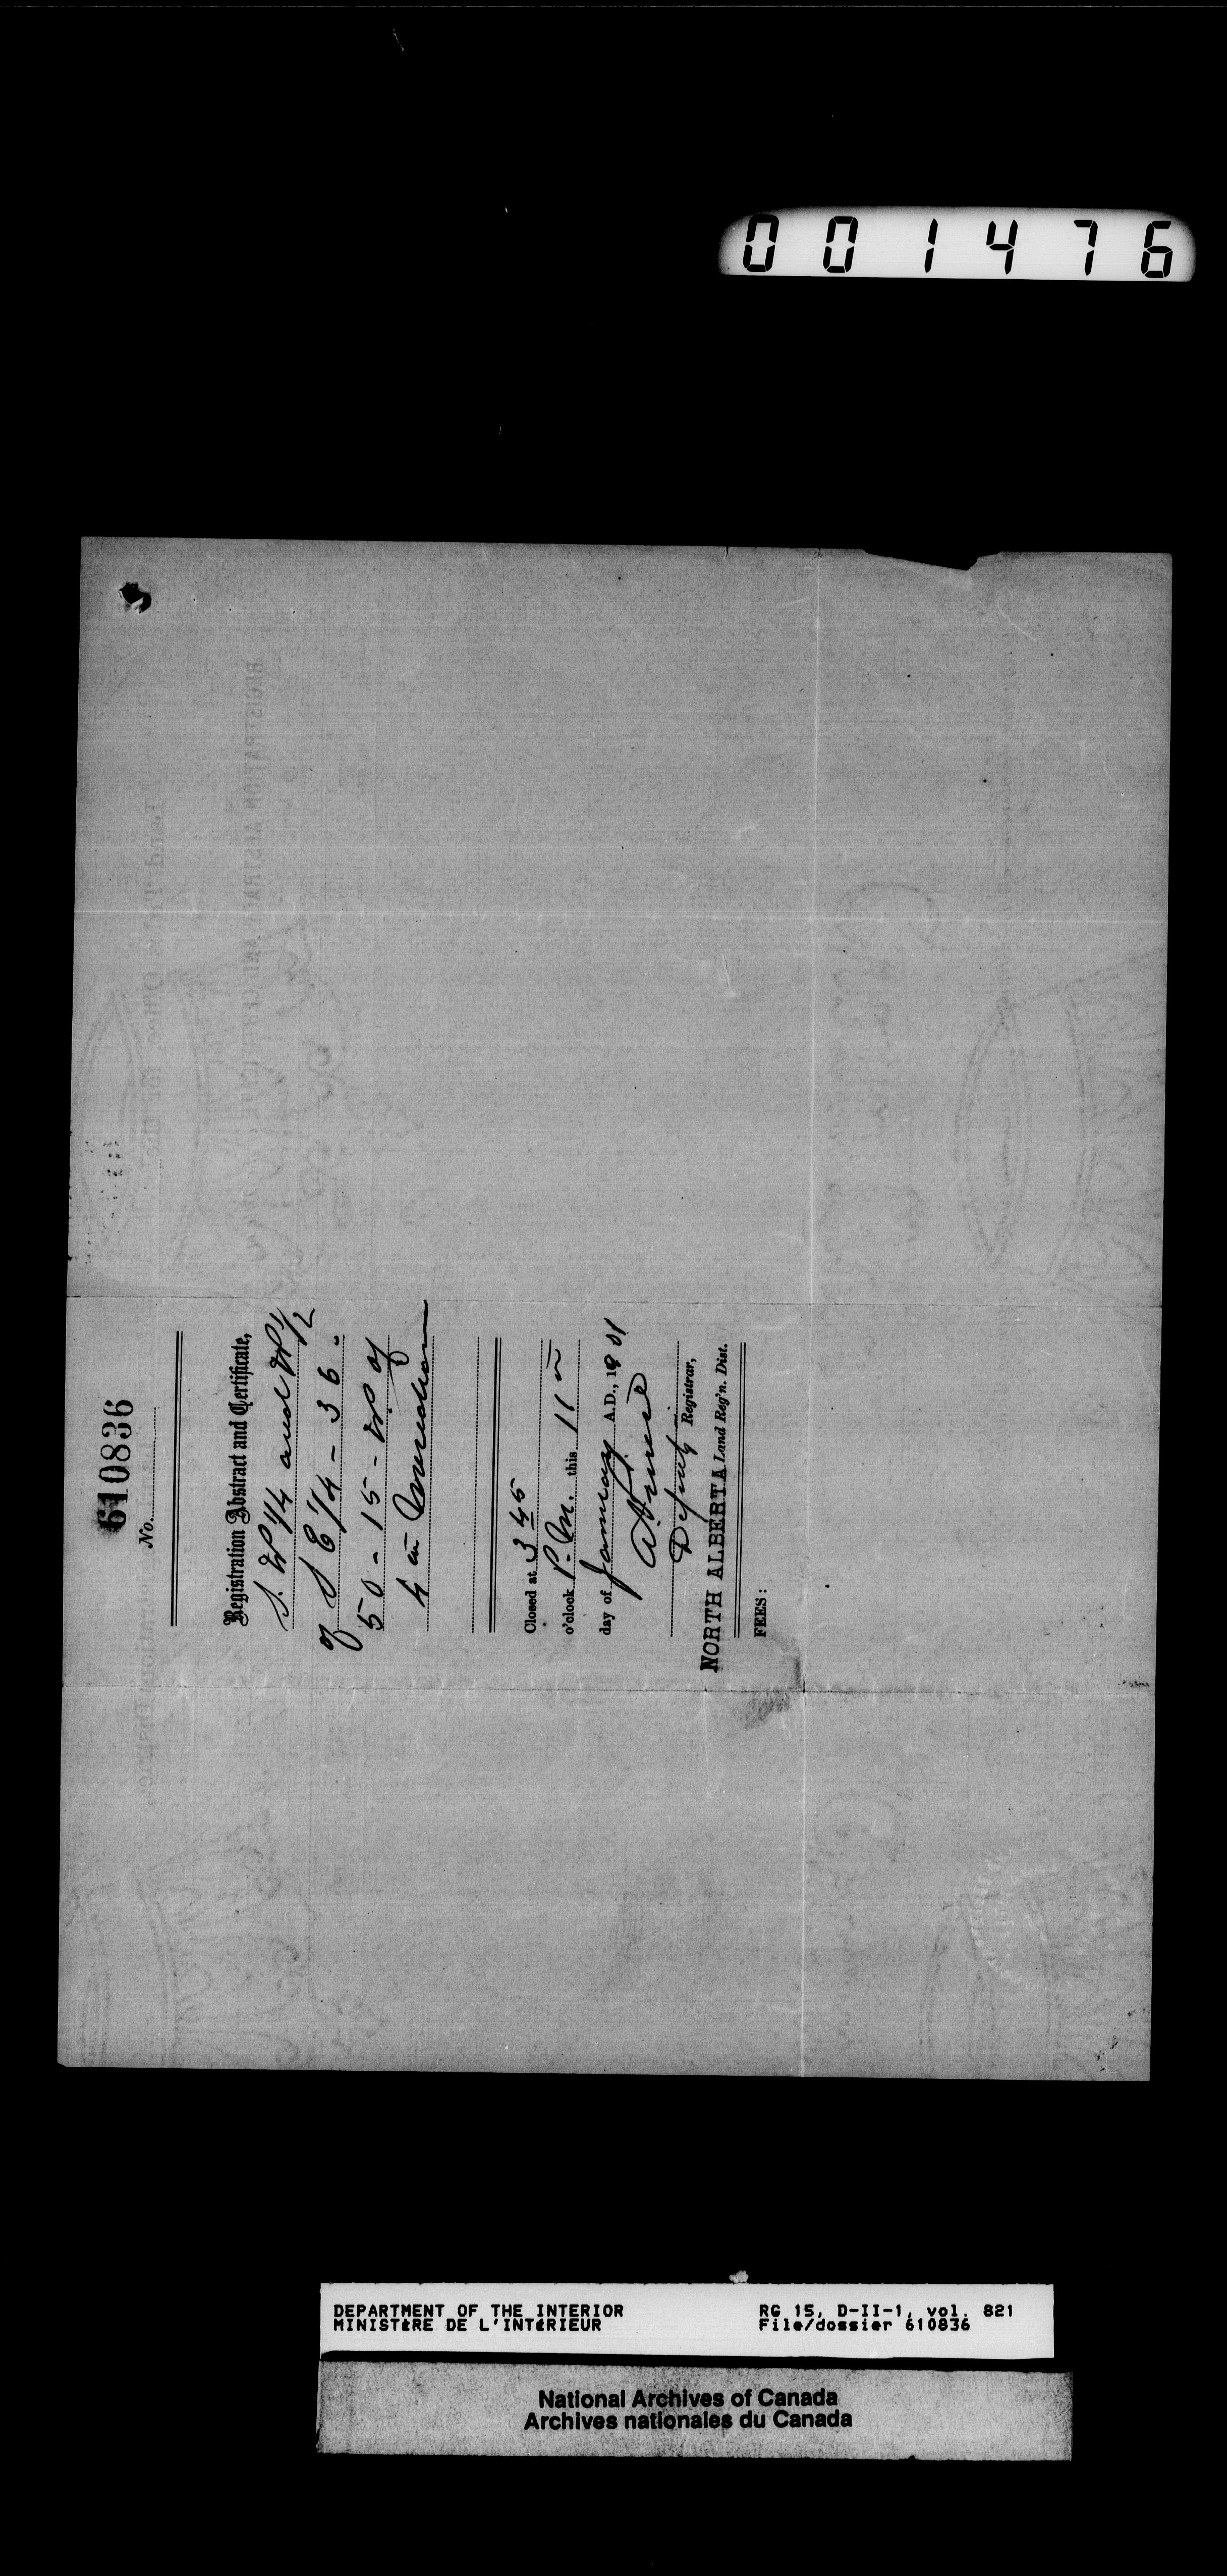 001476
610836
No.
Registration Abstract and Certificate,
S. W 1/4 and W 1/2
of S E 1/4 - 36 -
50 - 15 - W of
4th Meridian
Closed at 3 45
o'clock P.M. this 11th
day of January A.D., 1901
Deputy Registrar,
NORTH ALBERTA Land Reg'n. Dist.
FEES:
DEPARTMENT OF THE INTERIOR RG 15, D-II-1, vol. 821
MINISTÈRE DE L'INTÉRIEUR File/dossier 610836
National Archives of Canada
Archives nationales du Canada